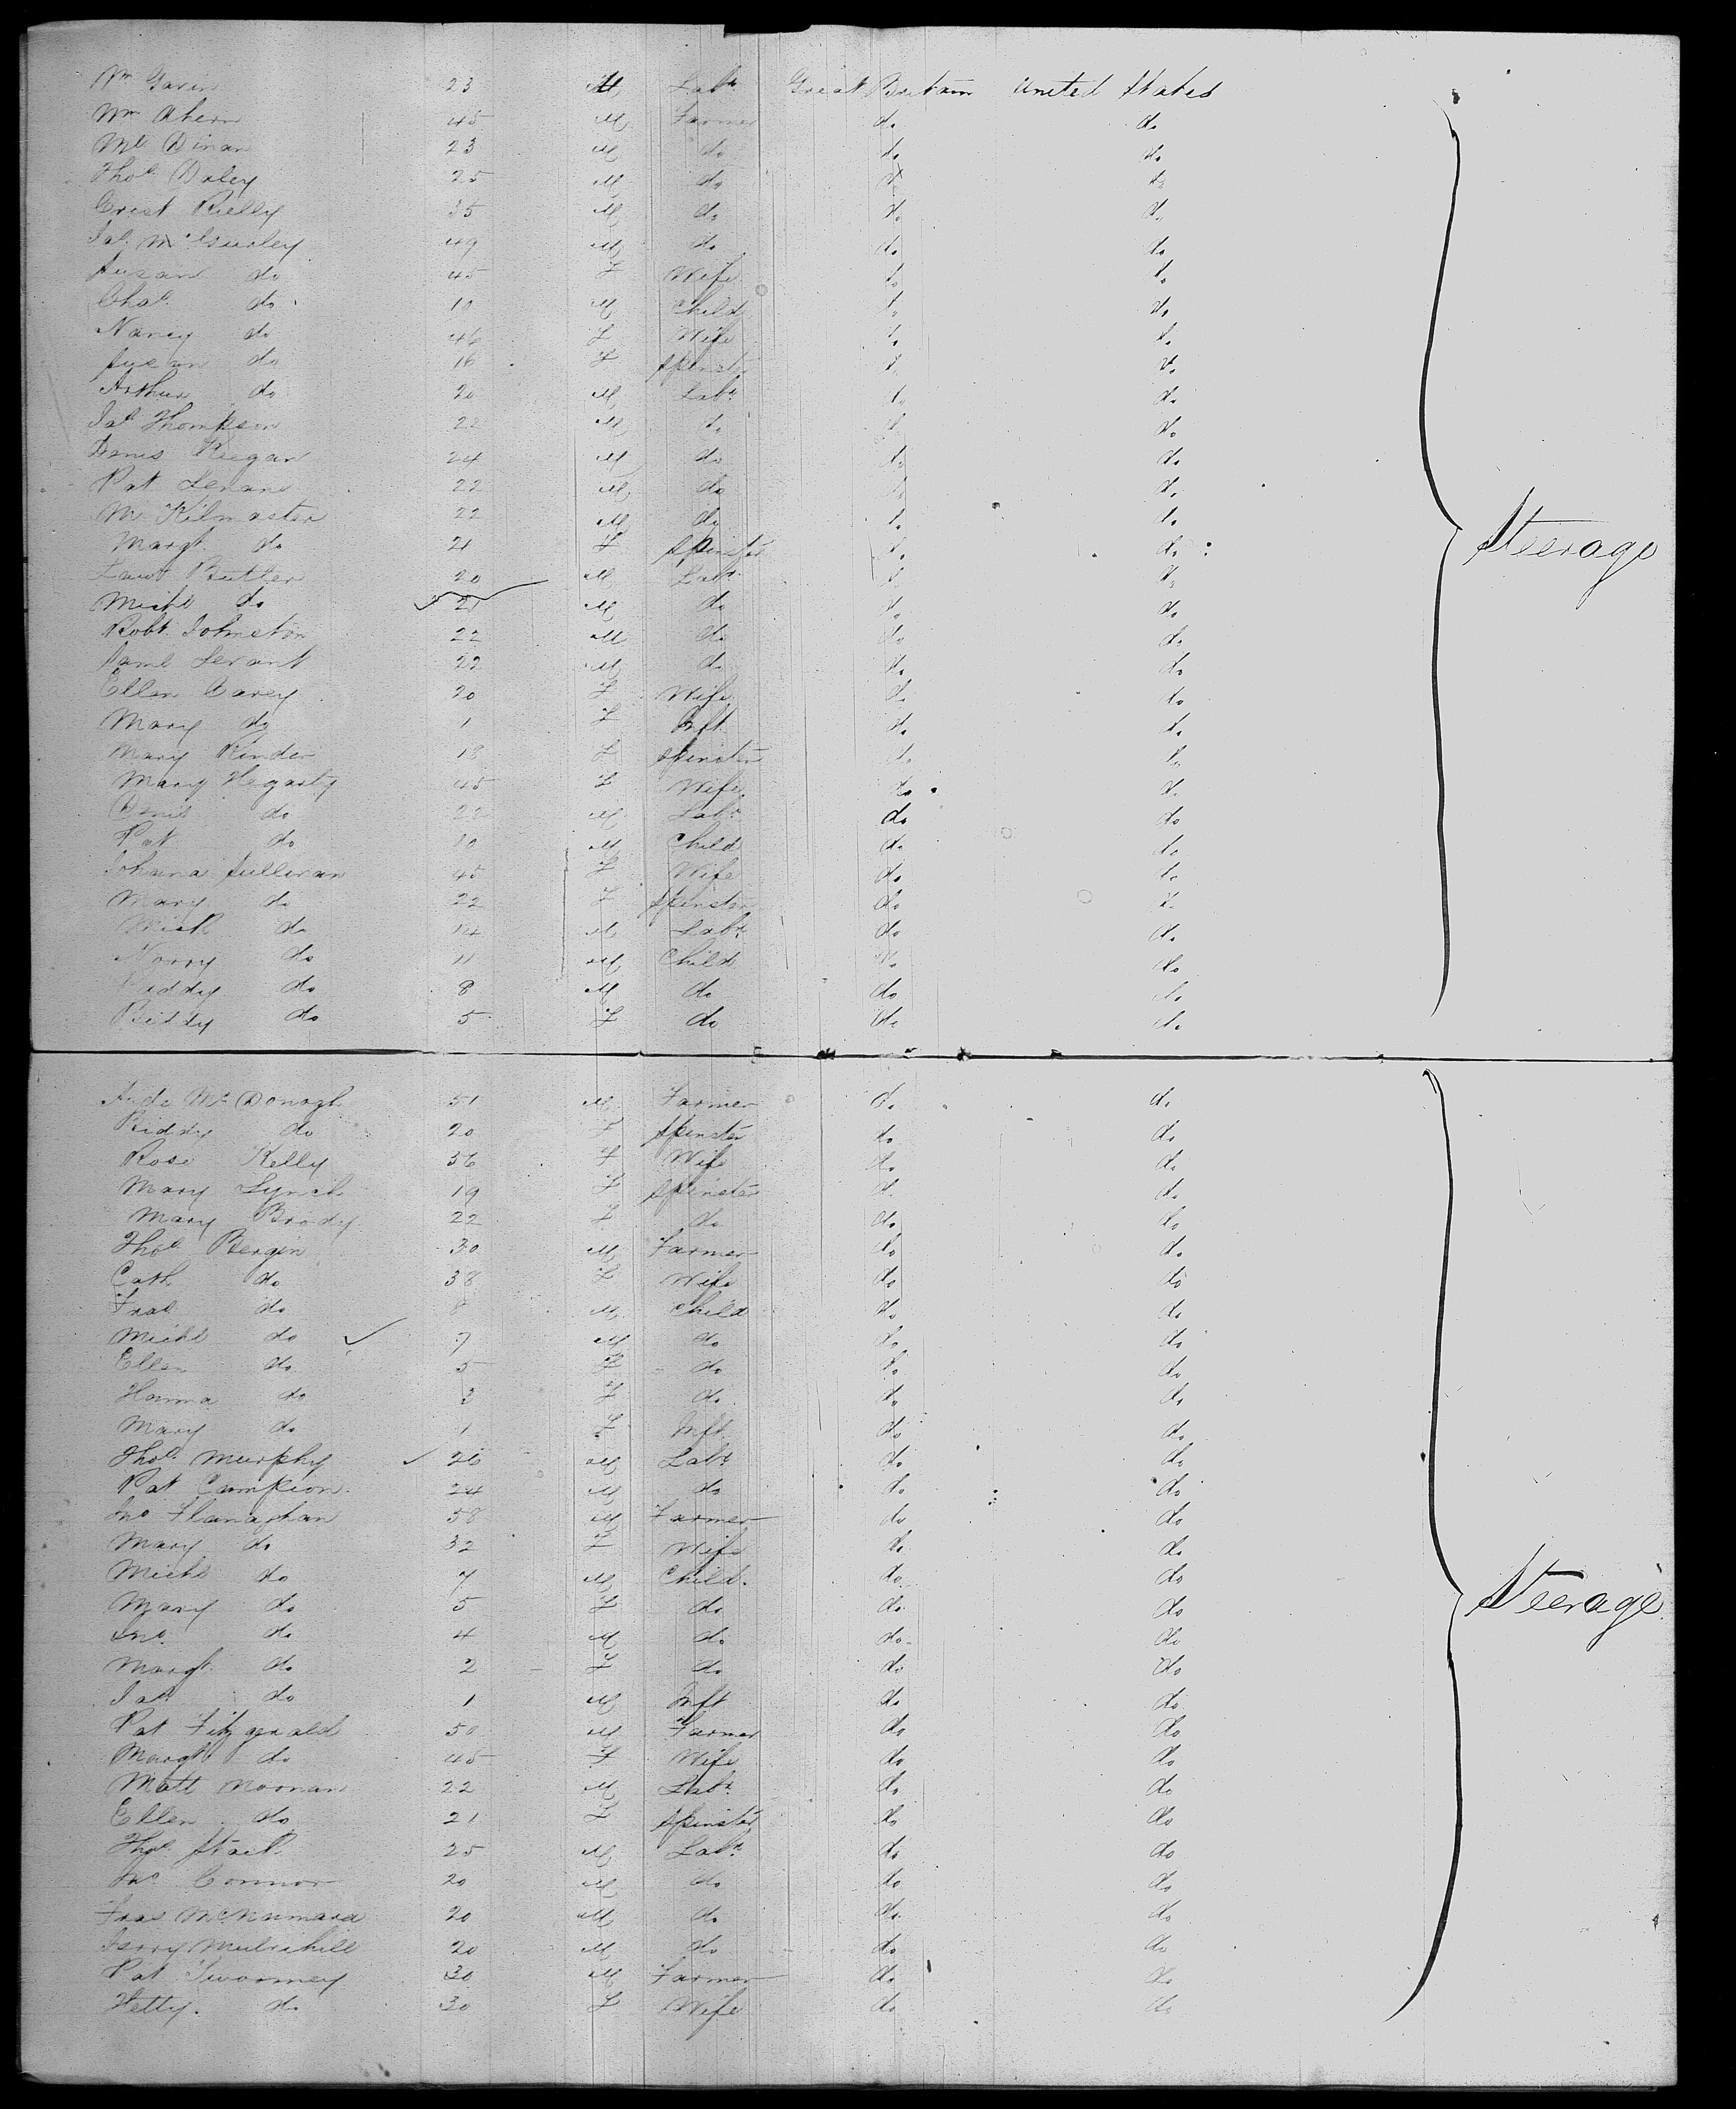 Wm Gavin 23 M Labr Great Britain United States
Wm Ahern 45 M Farmer do do
Ml Dinan 23 M do do do
Thos Daley 25 M do do do
Crist Rielly 35 M do do do
Jas McGurley 49 M do do do
Susan do 45 F Wife do do
Chas do 10 M Child do do
Nancy do 46 F Wife do do
Susan do 16 F Spinster do do
Arthur do 20 M Labr do do
Jas Thompson 22 M do do do
Denis Reegan 24 M do do do
Pat Lenane 22 M do do do
M Kilmaster 22 M do do do
Margt do 21 F Spinster do do
Lawr Butler 20 M Labr do do
Michl do 21 M do do do
Robt Johnston 22 M do do do
Saml Levant 22 M do do do
Ellen Carey 20 F Wife do do
Mary do 1 F Inft do do
Mary Kinder 18 F Spinster do do
Mary Hegarty 45 F Wife do do
Denis do 22 M Labr do do
Pat do 10 M Child do do
Johana Sullivan 45 F Wife do do
Mary do 22 F Spinster do do
Mick do 14 M Labr do do
Norry do 11 M Child do do
do 8 M do do do
Biddy do 5 F do do do
Steerage
McDonogh 51 M Farmer do do
Biddy do 20 F Spinster do do
Rose Kelly 36 F Wife do do
Mary Lynch 19 F Spinster do do
Mary Brody 22 F do do do
Thos Bergin 30 M Farmer do do
Cath do 38 F Wife do do
Fras do 8 M Child do do
Michl do 7 M do do do
Ellen do 5 F do do do
Hanna do 3 F do do do
Mary do 1 F Inft do do
Thos Murphy 26 M Labr do do
Pat Campion 24 M do do do
Jno Flanaghan 58 M Farmer do do
Mary do 32 F Wife do do
Michl do 7 M Child do do
Mary do 5 F do do do
Jno do 4 M do do do
Margt do 2 F do do do
Jas do 1 M Inft do do
Pat Fitzgerald 50 M Farmer do do
Margt do 45 F Wife do do
Matt Noonan 22 M Labr do do
Ellen do 21 F Spinster do do
Thos Stack 25 M Labr do do
Jno Connor 20 M do do do
Fras McNamara 20 M do do do
Jerry Mulvihill 20 M do do do
Pat Twoomey 30 M Farmer do do
Hetty do 30 F Wife do do
Steerage